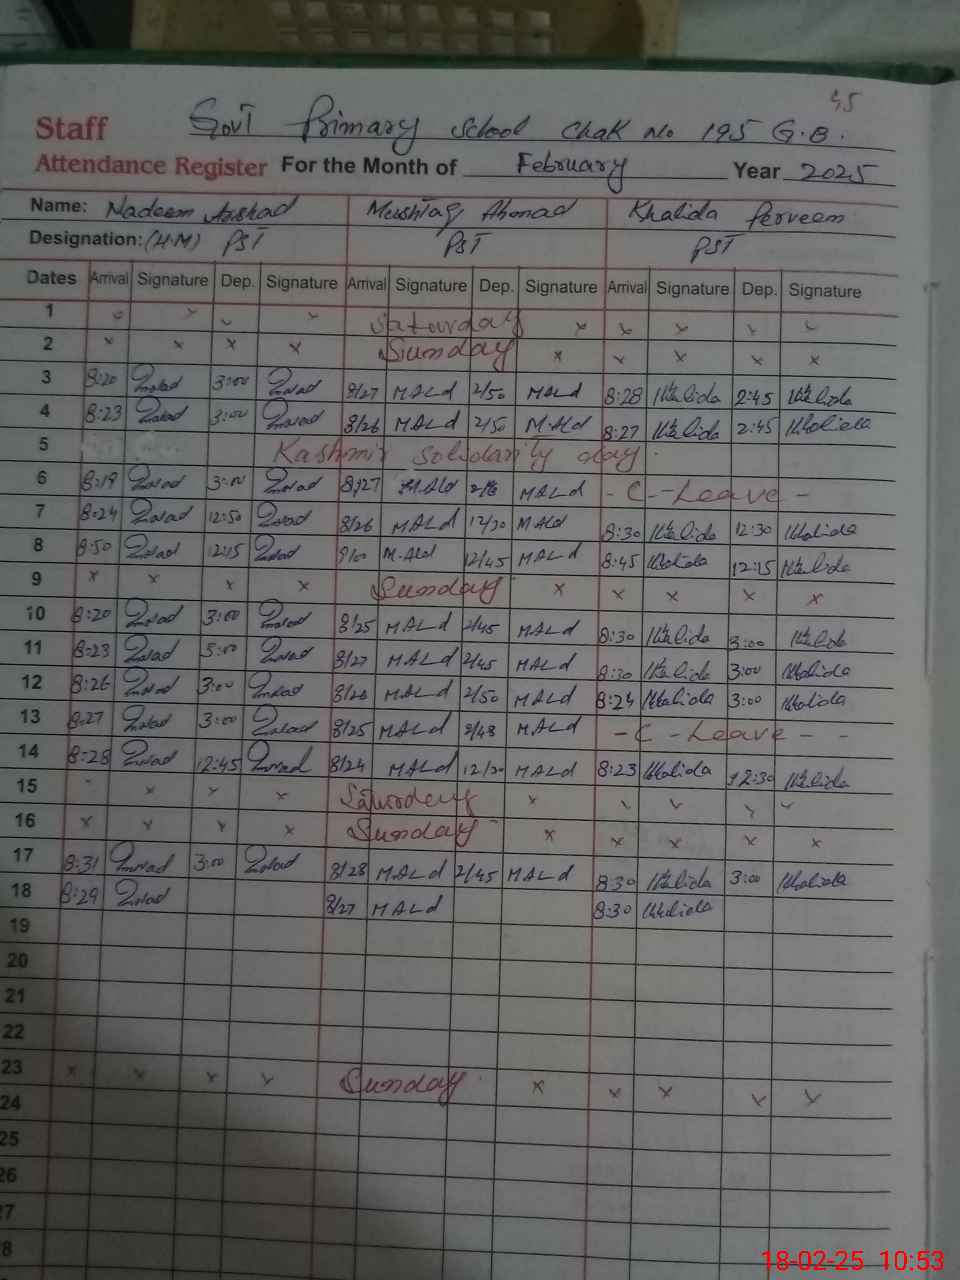 45
Staff Govt Primary School Chak No 195 G.B.
Attendance Register For the Month of February Year 2025
Name: Nadeem Arshad Mushtaq Ahmad Khalida Perveen
Designation: (H.M) PST PST PST
Dates Arrival Signature Dep. Signature Arrival Signature Dep. Signature Arrival Signature Dep. Signature
1 Saturday x
2 x x x x Sunday x x x x x
3 8:20 3:00 8/27 MALd 2/50 MALd 8:28 Khalida 2:45 Khalida
4 8:23 3:00 8/26 MALd 2/50 MALd 8:27 Khalida 2:45 Khalida
5 Kashmir Solidarity day
6 8:19 3:00 8/27 MALd MALd - C - Leave -
7 8:24 12:50 8/26 MALd 12/30 MALd 8:30 Khalida 12:30 Khalida
8 8:50 12:15 9/00 MALd 12/45 MALd 8:45 Khalida 12:15 Khalida
9 x x x x Sunday x x x x x
10 8:20 3:00 8/25 MALd 2/45 MALd 8:30 Khalida 3:00 Khalida
11 8:23 8/27 MALd 2/45 MALd 8:30 Khalida 3:00 Khalida
12 8:26 3:00 MALd 2/50 MALd 8:24 Khalida 3:00 Khalida
13 8:27 3:00 8/25 MALd MALd - C - Leave - -
14 8:28 12:45 8/24 MALd 12/30 MALd 8:23 Khalida 12:30 Khalida
15 x x x Saturday x
16 x x x x Sunday x x x x x
17 8:31 3:00 8/28 MALd 2/45 MALd 8:30 Khalida 3:00 Khalida
18 8:29 8/27 MALd 8:30 Khalida
19
20
21
22
23 x x x x Sunday x x x x x
24
25
26
27
28
18-02-25 10:53